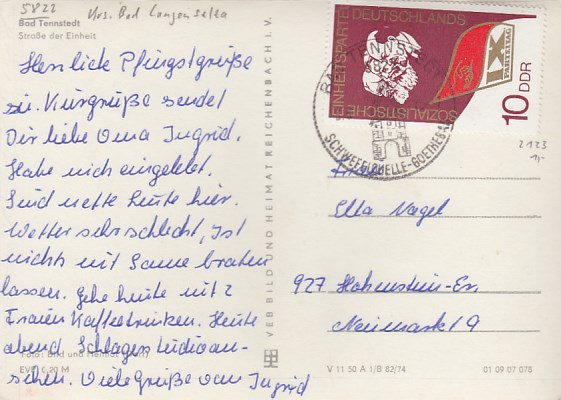 5822 Krs. Bad Langensalza
Bad Tennstedt
Straße der Einheit
Herzliche Pfingstgrüße
u. Kurgrüße sendet
Dir liebe Oma Ingrid.
Habe mich eingelebt.
Sind nette Leute hier.
Wetter sehr schlecht, Ist
nichts mit Sonne braten
lassen. Gehe heute mit 2
Frauen Kaffeetrinken. Heute
abend Schlagerstudio an-
sehen. Viele Grüße von Ingrid
Foto: Bild und Heimat
EVP 0,20 M
VEB BILD UND HEIMAT REICHENBACH I. V.
SOZIALISTISCHE EINHEITSPARTEI DEUTSCHLANDS
IX.
PARTEITAG
10 DDR
BAD TENNSTEDT
SCHWEFELQUELLE-GOETHEBAD
2123
1,-
Ella Nagel
927 Hohenstein-Er.
Neumarkt 9
V 11 50 A 1/B 82/74 01 09 07 078